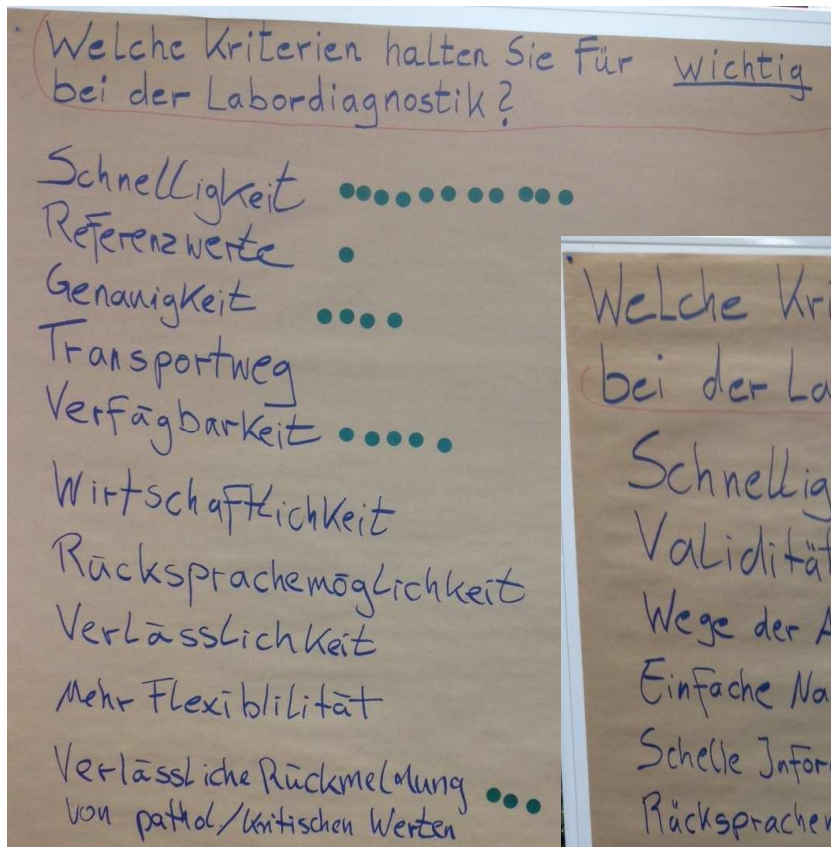 Welche Kriterien halten Sie für wichtig
bei der Labordiagnostik?
Schnelligkeit
Referenzwerte
Genauigkeit
Transportweg
Verfügbarkeit
Wirtschaftlichkeit
Rücksprachemöglichkeit
Verlässlichkeit
Mehr Flexiblilität
Verlässliche Rückmeldung
von pathol/kritischen Werten
Welche Kri
bei der La
Schnellig
Validität
Wege der A
Einfache Na
Schelle Infor
Rücksprachem